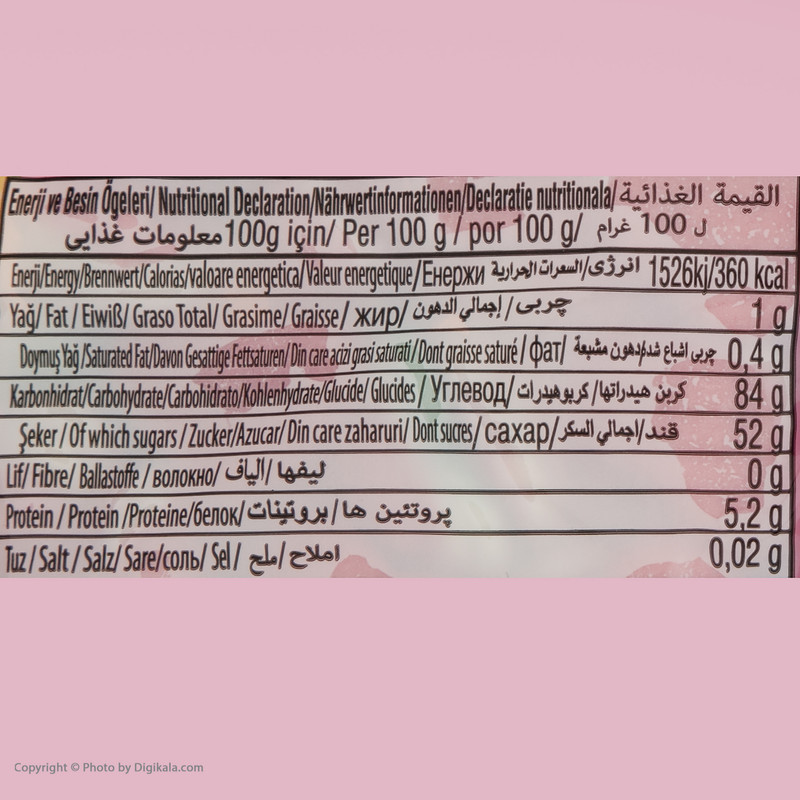 Enerji ve Besin Ögeleri/ Nutritional Declaration/Nährwertinformationen/Declaratie nutritionala/ القيمة الغذائية
100g için/ Per 100 g / por 100 g/ ل 100 غرام معلومات غذایی
Enerji/Energy/Brennwert/Calorias/valoare energetica/Valeur energetique/Енержи انرژی/السعرات الحرارية 1526kj/360 kcal
Yağ/ Fat / Eiwiß/ Graso Total/ Grasime/ Graisse/ жир/ چربی/إجمالي الدهون 1 g
Doymuş Yağ /Saturated Fat/Davon Gesattige Fettsaturen/ Din care acizi grasi saturati/ Dont graisse saturé / фат/ چربی اشباع شده/دهون مشبعة 0,4 g
Karbonhidrat/Carbohydrate/Carbohidrato/Kohlenhydrate/Glucide/ Glucides / Углевод/ کربن هیدراتها/كربوهيدرات 84 g
Şeker / Of which sugars / Zucker/Azucar/ Din care zaharuri/ Dont sucres/ сахар/ قند/إجمالي السكر 52 g
Lif/ Fibre/ Ballastoffe / волокно/ لیفها/الياف 0 g
Protein / Protein /Proteine/белок/ پروتئین ها/بروتينات 5,2 g
Tuz / Salt / Salz/ Sare/соль/ Sel / املاح/ملح 0,02 g
Copyright © Photo by Digikala.com